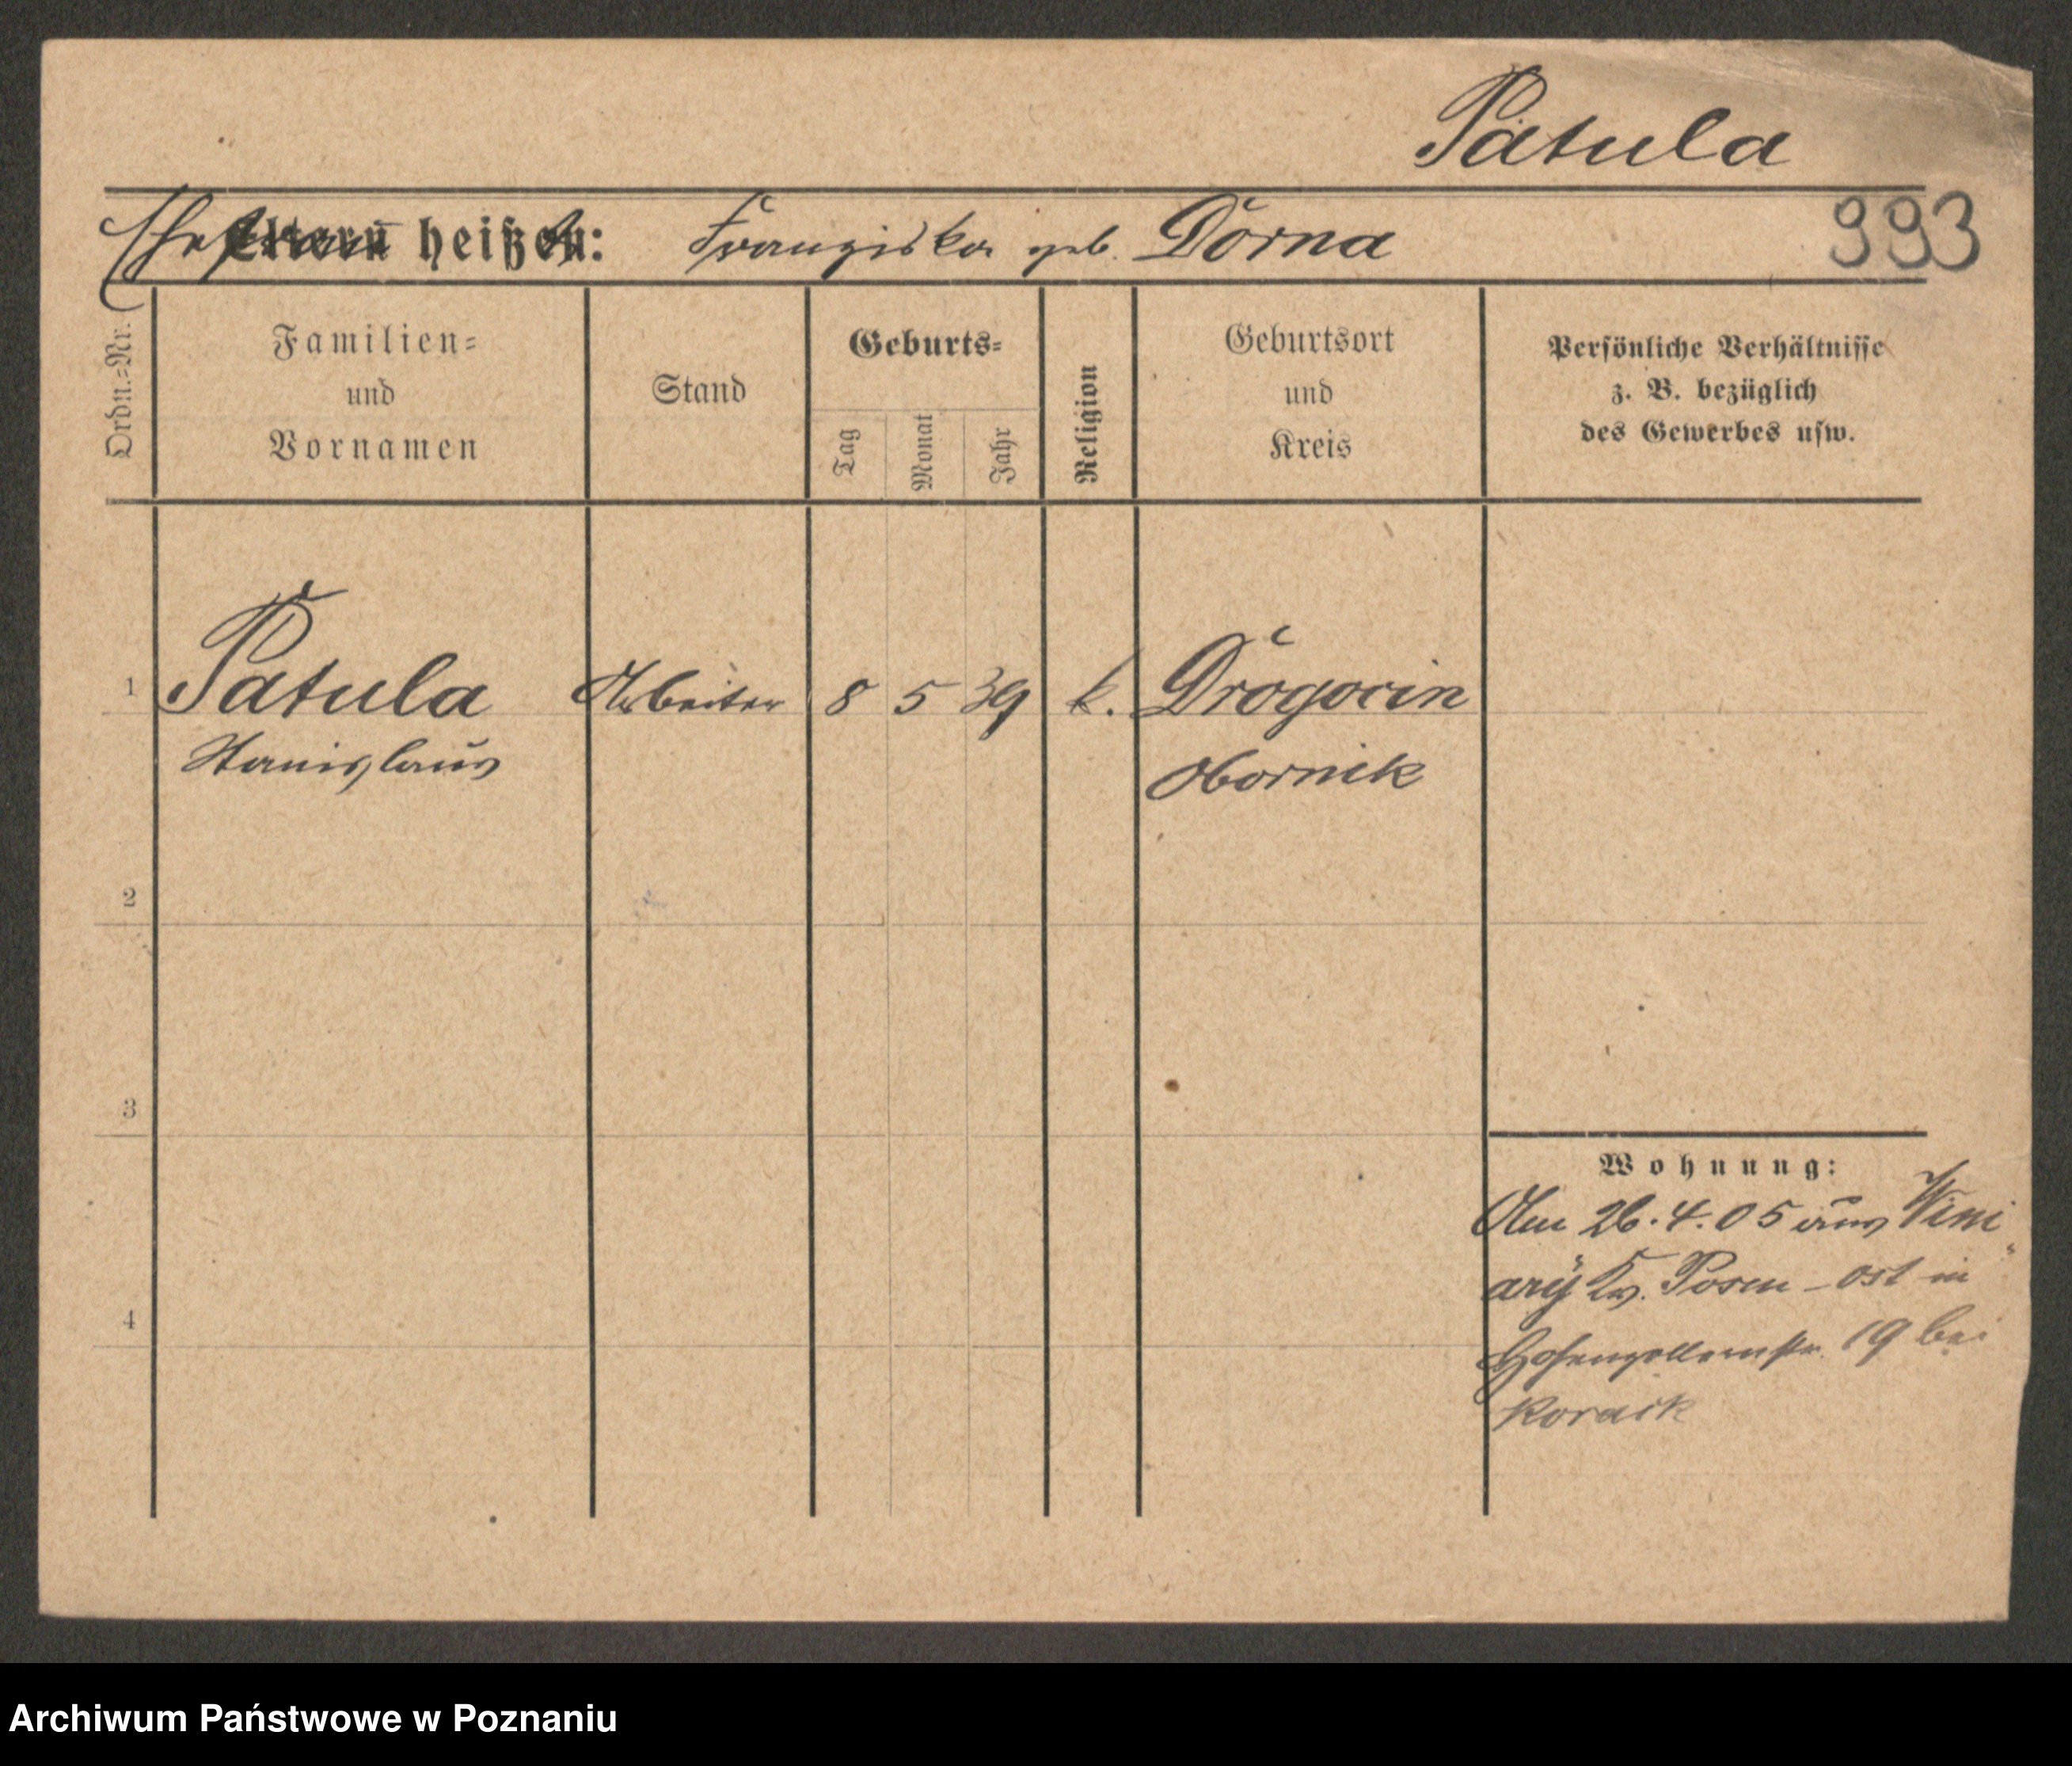 Patula
Ehefrau heißt: Franziska geb. Dorna
993
Ordn.-Nr.
Familien-
und
Vornamen
Stand
Geburts-
Tag
Monat
Jahr
Religion
Geburtsort
und
Kreis
Persönliche Verhältnisse
z. B. bezüglich
des Gewerbes usw.
1 Patula Arbeiter 8 5 39 k. Drogocin
Stanislaus Obornik
2
3
4
Wohnung:
Am 26.4.05 aus Wini
ary Kr. Posen-Ost in
Hohenzollernstr. 19 bei
Archiwum Państwowe w Poznaniu